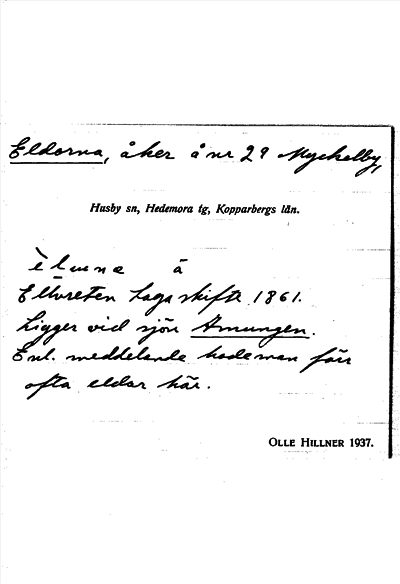 Eldorna, åker å nr 29 Myckelby,
Husby sn, Hedemora tg, Kopparbergs län.
å
Laga skifte 1861.
Ligger vid sjön Amungen.
Enl. meddelande hade man förr
ofta eldar här.
OLLE HILLNER 1937.